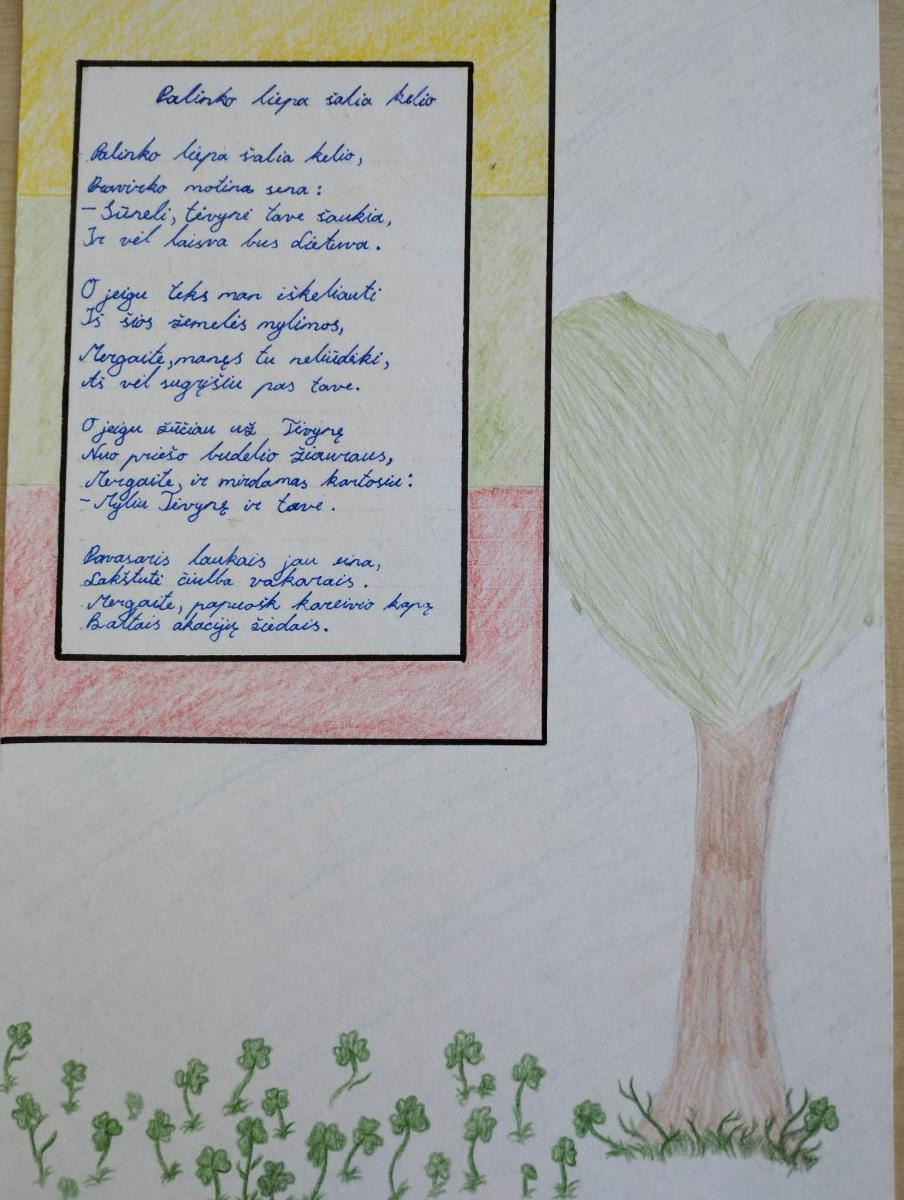 Palinko liepa šalia kelio
Palinko liepa šalia kelio,
Pravirko motina sena:
- Sūneli, tėvynė tave šaukia,
Ir vėl laisva bus Lietuva.
O jeigu teks man iškeliauti
Iš šios žemelės mylimos,
Mergaite, manęs tu neliūdėki,
Aš vėl sugrįšiu pas tave.
O jeigu žūčiau už Tėvynę
Nuo priešo budelio žiauraus,
Mergaite, ir mirdamas kartosiu:
- Myliu Tėvynę ir tave.
Pavasaris laukais jau eina,
Lakštutė čiulba vakarais.
Mergaite, papuošk kareivio kapą
Baltais akacijų žiedais.